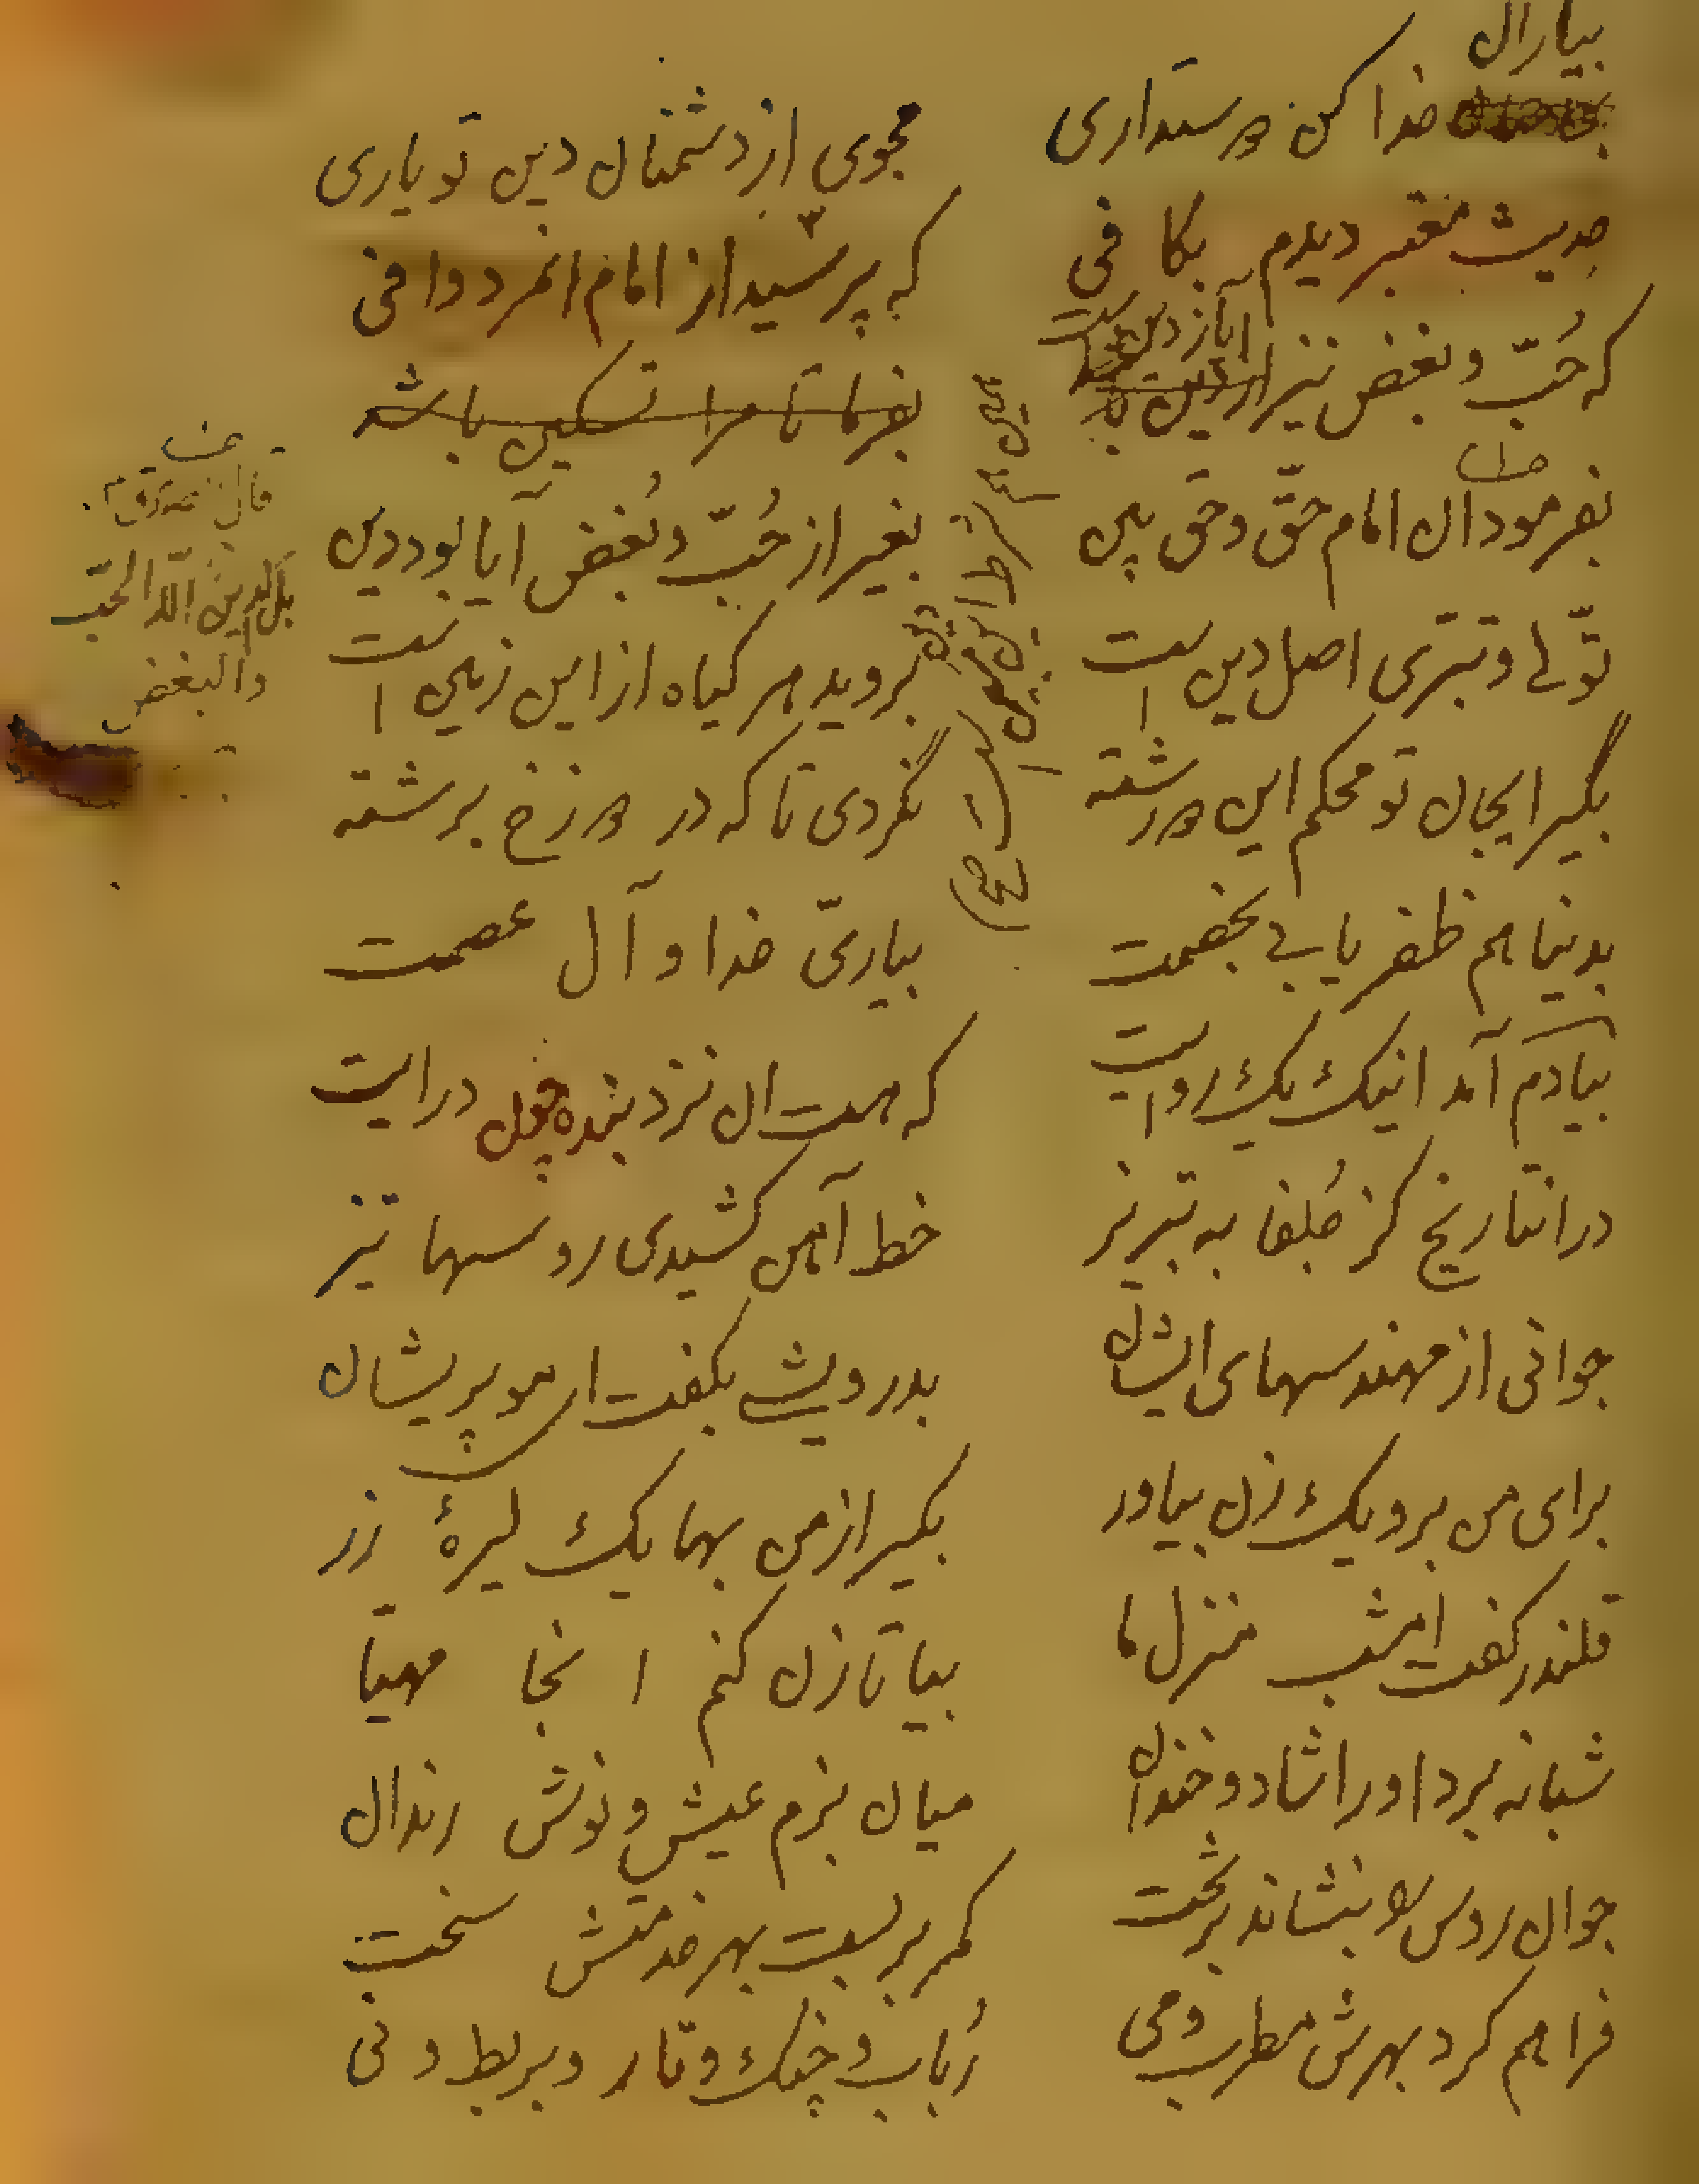 بیاران
خدا کن دوستداری
مجوی از دشمنان دین تو یاری
حدیث معتبر دیدم بکافی
که پرسید از امام انمرد وافی
که حُبّ و بغض نیز آیا ز دین است
بفرما تا مرا تسکین باشد
بفرمود آن امام حقّ و حق بین
بغیر از حُبّ و بُغض آیا بود دین
تولّی و تبرّی اصل دین است
بروید هر گیاه از این زمین است
بگیر ایجان تو محکم این دو رشته
نگردی تا که در دوزخ برشته
بدنیا هم ظفر یابی بخصمت
بیاریّ خدا و آل عصمت
بیادم آمد اینک یک روایت
که هست آن نزد بنده چون درایت
در انتاریخ کز جُلفا به تبریز
خط آهن کشیدی روسها تیز
جوانی از مهندسهای ایشان
بدرویشی بگفت ای مو پریشان
برای من برو یک زن بیاور
بگیر از من بها یک لیرهٔ زر
قلندر گفت امشب منزل ما
بیا تا زن کنم انجا مهیّا
شبانه برد او را شاد و خندان
میان بزم عیش و نوش رندان
جوان روس را بنشاند بر تخت
کمر بر بست بهر خدمتش سخت
فراهم کرد بهرش مطرب و می
رُباب و چنگ و تار و بربط و نی
قال
هل الدین الّا الحبّ
والبغض